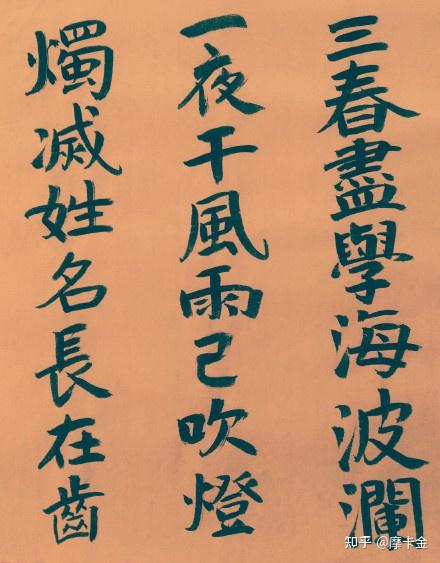 三春盡學海波瀾
一夜干風雨己吹燈
燭滅姓名長在齒
知乎 @摩卡金